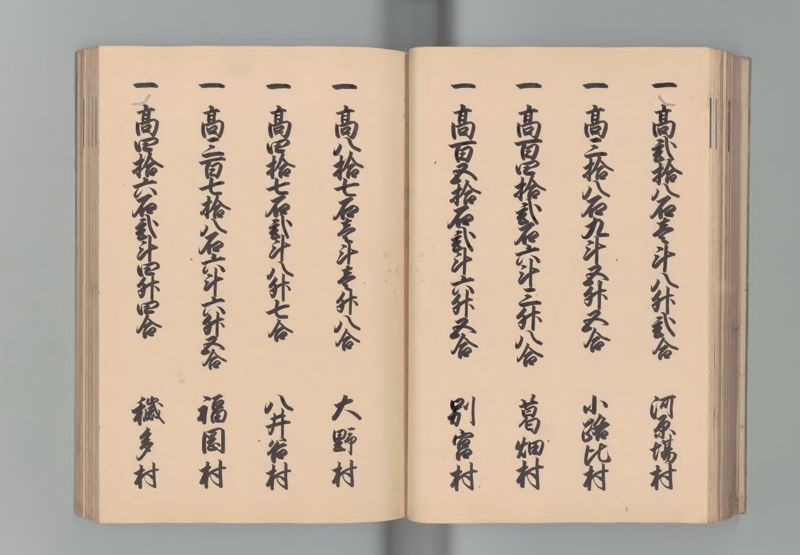 一 高弐拾八石壱斗八升弐合 河原場村
一 高三拾八石九斗五升五合 小路比村
一 高百四拾弐石六斗三升八合 葛畑村
一 高百五拾石弐斗六升五合 別宮村
一 高八拾七石壱斗壱升八合 大野村
一 高四拾七石弐斗八升七合 八井谷村
一 高三百七拾八石六斗六升五合 福岡村
一 高四拾六石弐斗四升四合 穢多村